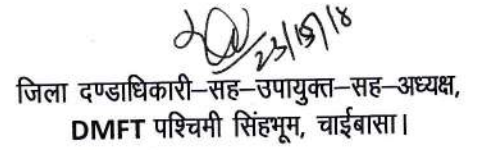 जिला दण्डाधिकारी–सह–उपायुक्त–सह–अध्यक्ष,
DMFT पश्चिमी सिंहभूम, चाईबासा।